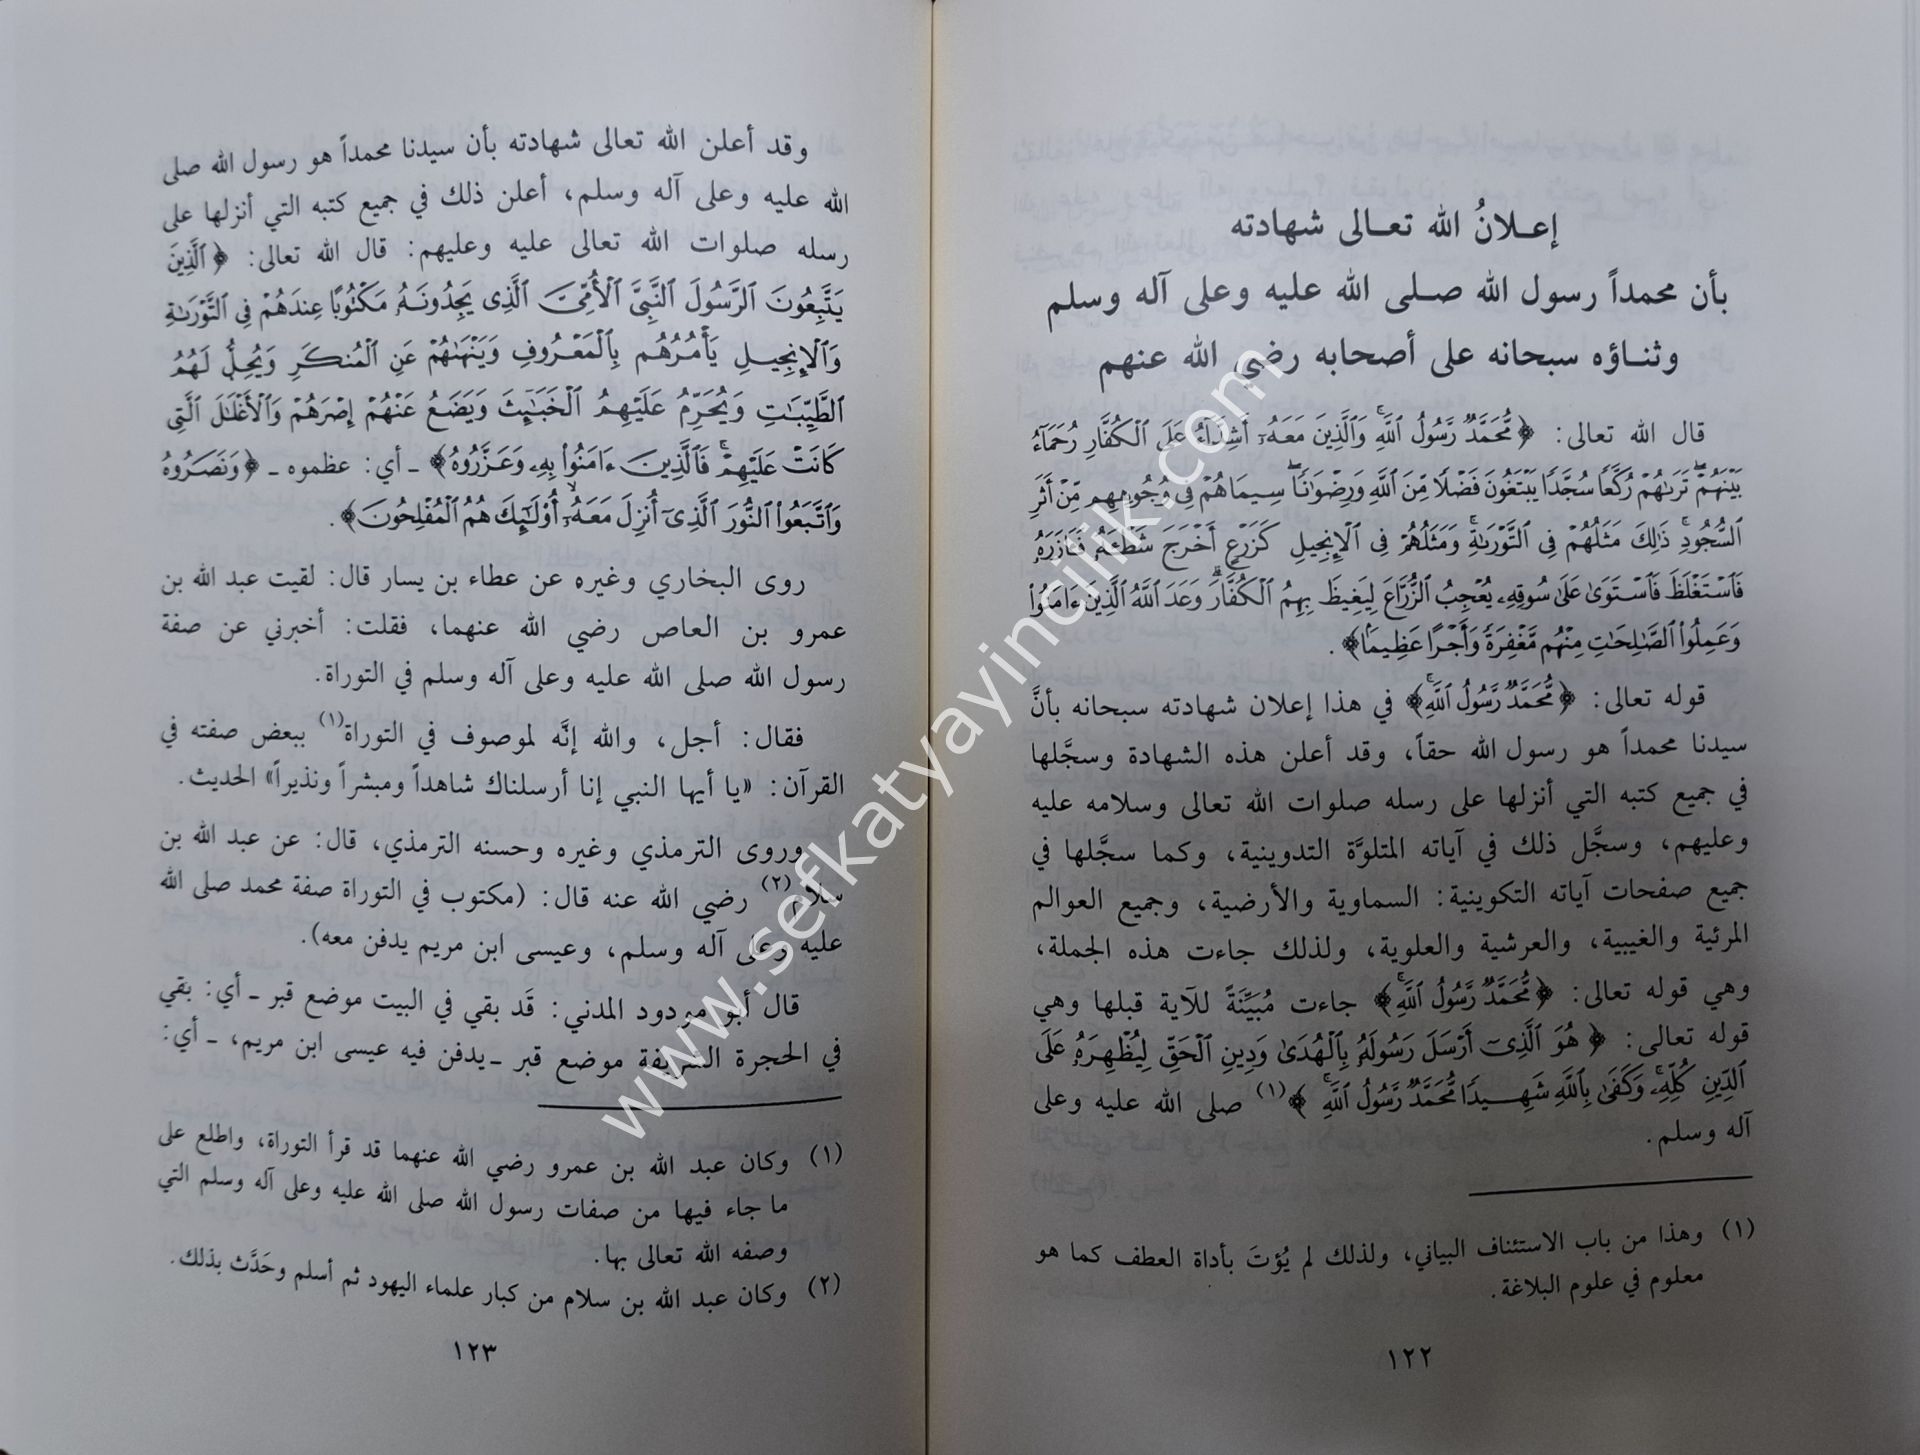 إعــلانُ الله تعــالى شهادته
بأن محمداً رسول الله صــلى الله عليه وعلى آله وسلم
وثنــاؤه سبحانه على أصحابه رضي الله عنهم
قال الله تعالى: ﴿ مُّحَمَّدٌ رَّسُولُ ٱللَّهِۚ وَٱلَّذِينَ مَعَهُۥٓ أَشِدَّآءُ عَلَى ٱلْكُفَّارِ رُحَمَآءُ
بَيْنَهُمْۖ تَرَىٰهُمْ رُكَّعًا سُجَّدًا يَبْتَغُونَ فَضْلًا مِّنَ ٱللَّهِ وَرِضْوَٰنًاۖ سِيمَاهُمْ فِى وُجُوهِهِم مِّنْ أَثَرِ
ٱلسُّجُودِۚ ذَٰلِكَ مَثَلُهُمْ فِى ٱلتَّوْرَىٰةِۚ وَمَثَلُهُمْ فِى ٱلْإِنجِيلِ كَزَرْعٍ أَخْرَجَ شَطْـَٔهُۥ فَـَٔازَرَهُۥ
فَٱسْتَغْلَظَ فَٱسْتَوَىٰ عَلَىٰ سُوقِهِۦ يُعْجِبُ ٱلزُّرَّاعَ لِيَغِيظَ بِهِمُ ٱلْكُفَّارَۗ وَعَدَ ٱللَّهُ ٱلَّذِينَ ءَامَنُوا۟
وَعَمِلُوا۟ ٱلصَّٰلِحَٰتِ مِنْهُم مَّغْفِرَةً وَأَجْرًا عَظِيمًۢا﴾ .
قوله تعالى: ﴿مُّحَمَّدٌ رَّسُولُ ٱللَّهِۚ﴾ في هذا إعلان شهادته سبحانه بأنَّ
سيدنا محمداً هو رسول الله حقاً، وقد أعلن هذه الشهادة وسجَّلها
في جميع كتبه التي أنزلها على رسله صلوات الله تعالى وسلامه عليه
وعليهم، وسجَّل ذلك في آياته المتلوَّة التدوينية، وكما سجَّلها في
جميع صفحات آياته التكوينية: السماوية والأرضية، وجميع العوالم
المرئية والغيبية، والعرشية والعلوية، ولذلك جاءت هذه الجملة،
وهي قوله تعالى: ﴿مُّحَمَّدٌ رَّسُولُ ٱللَّهِۚ﴾ جاءت مُبَيِّنَةً للآية قبلها وهي
قوله تعالى: ﴿ هُوَ ٱلَّذِىٓ أَرْسَلَ رَسُولَهُۥ بِٱلْهُدَىٰ وَدِينِ ٱلْحَقِّ لِيُظْهِرَهُۥ عَلَى
ٱلدِّينِ كُلِّهِۦۚ وَكَفَىٰ بِٱللَّهِ شَهِيدًا مُّحَمَّدٌ رَّسُولُ ٱللَّهِۚ ﴾(١) صلى الله عليه وعلى
آله وسلم.
(١) وهذا من باب الاستئناف البياني، ولذلك لم يُؤتَ بأداة العطف كما هو
معلوم في علوم البلاغة.
١٢٢
وقد أعلن الله تعالى شهادته بأن سيدنا محمداً هو رسول الله صلى
الله عليه وعلى آله وسلم، أعلن ذلك في جميع كتبه التي أنزلها على
رسله صلوات الله تعالى عليه وعليهم: قال الله تعالى: ﴿ ٱلَّذِينَ
يَتَّبِعُونَ ٱلرَّسُولَ ٱلنَّبِىَّ ٱلْأُمِّىَّ ٱلَّذِى يَجِدُونَهُۥ مَكْتُوبًا عِندَهُمْ فِى ٱلتَّوْرَىٰةِ
وَٱلْإِنجِيلِ يَأْمُرُهُم بِٱلْمَعْرُوفِ وَيَنْهَىٰهُمْ عَنِ ٱلْمُنكَرِ وَيُحِلُّ لَهُمُ
ٱلطَّيِّبَٰتِ وَيُحَرِّمُ عَلَيْهِمُ ٱلْخَبَٰٓئِثَ وَيَضَعُ عَنْهُمْ إِصْرَهُمْ وَٱلْأَغْلَٰلَ ٱلَّتِى
كَانَتْ عَلَيْهِمْۚ فَٱلَّذِينَ ءَامَنُوا۟ بِهِۦ وَعَزَّرُوهُ﴾ ـ أي: عظموه ـ ﴿وَنَصَرُوهُ
وَٱتَّبَعُوا۟ ٱلنُّورَ ٱلَّذِىٓ أُنزِلَ مَعَهُۥٓۙ أُو۟لَٰٓئِكَ هُمُ ٱلْمُفْلِحُونَ﴾.
روى البخاري وغيره عن عطاء بن يسار قال: لقيت عبد الله بن
عمرو بن العاص رضي الله عنهما، فقلت: أخبرني عن صفة
رسول الله صلى الله عليه وعلى آله وسلم في التوراة.
فقال: أجل، والله إنَّه لموصوف في التوراة(١) ببعض صفته في
القرآن: «يا أيها النبي إنا أرسلناك شاهداً ومبشراً ونذيراً» الحديث.
وروى الترمذي وغيره وحسنه الترمذي، قال: عن عبد الله بن
سلام(٢) رضي الله عنه قال: (مكتوب في التوراة صفة محمد صلى الله
عليه وعلى آله وسلم، وعيسى ابن مريم يدفن معه).
قال أبو مودود المدني: قَد بقي في البيت موضع قبر ـ أي: بقي
في الحجرة الشريفة موضع قبر ـ يدفن فيه عيسى ابن مريم، ـ أي:
(١) وكان عبد الله بن عمرو رضي الله عنهما قد قرأ التوراة، واطلع على
ما جاء فيها من صفات رسول الله صلى الله عليه وعلى آله وسلم التي
وصفه الله تعالى بها.
(٢) وكان عبد الله بن سلام من كبار علماء اليهود ثم أسلم وحَدَّث بذلك.
١٢٣
www.sefkatyayincilik.com